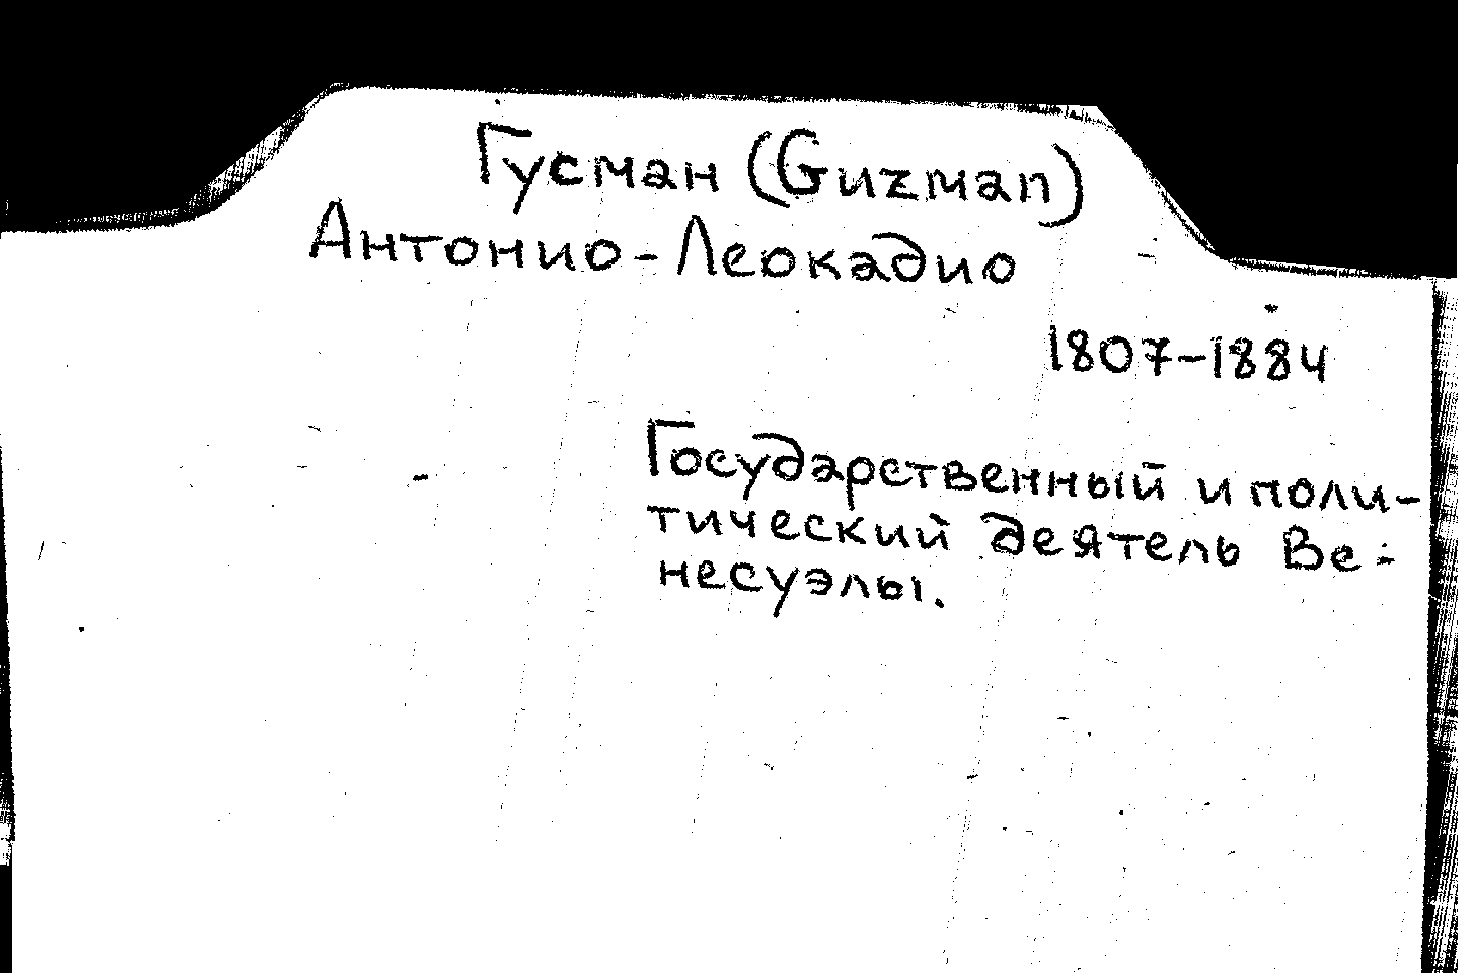 Гусман (Guzman)
Антонио-Леокадио
1807-1884
Государственный и поли-
тический деятель Ве-
несуэлы.